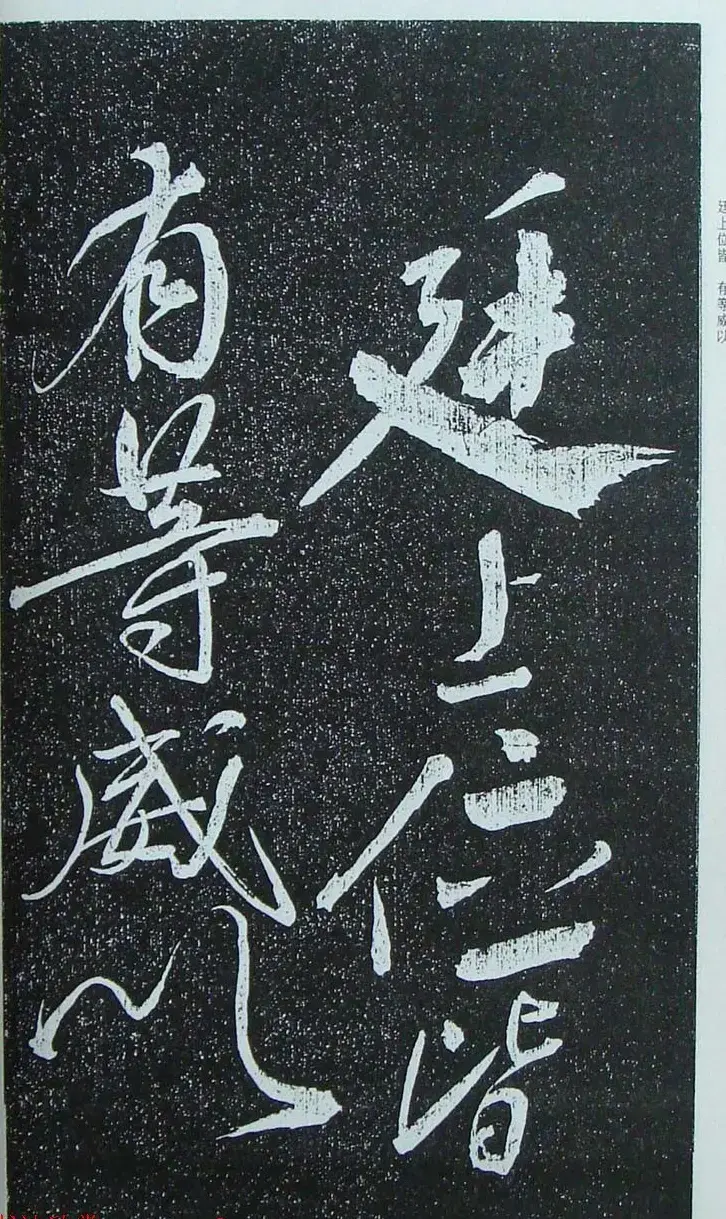 廷上位皆 有等威以
廷上位皆
有等威以